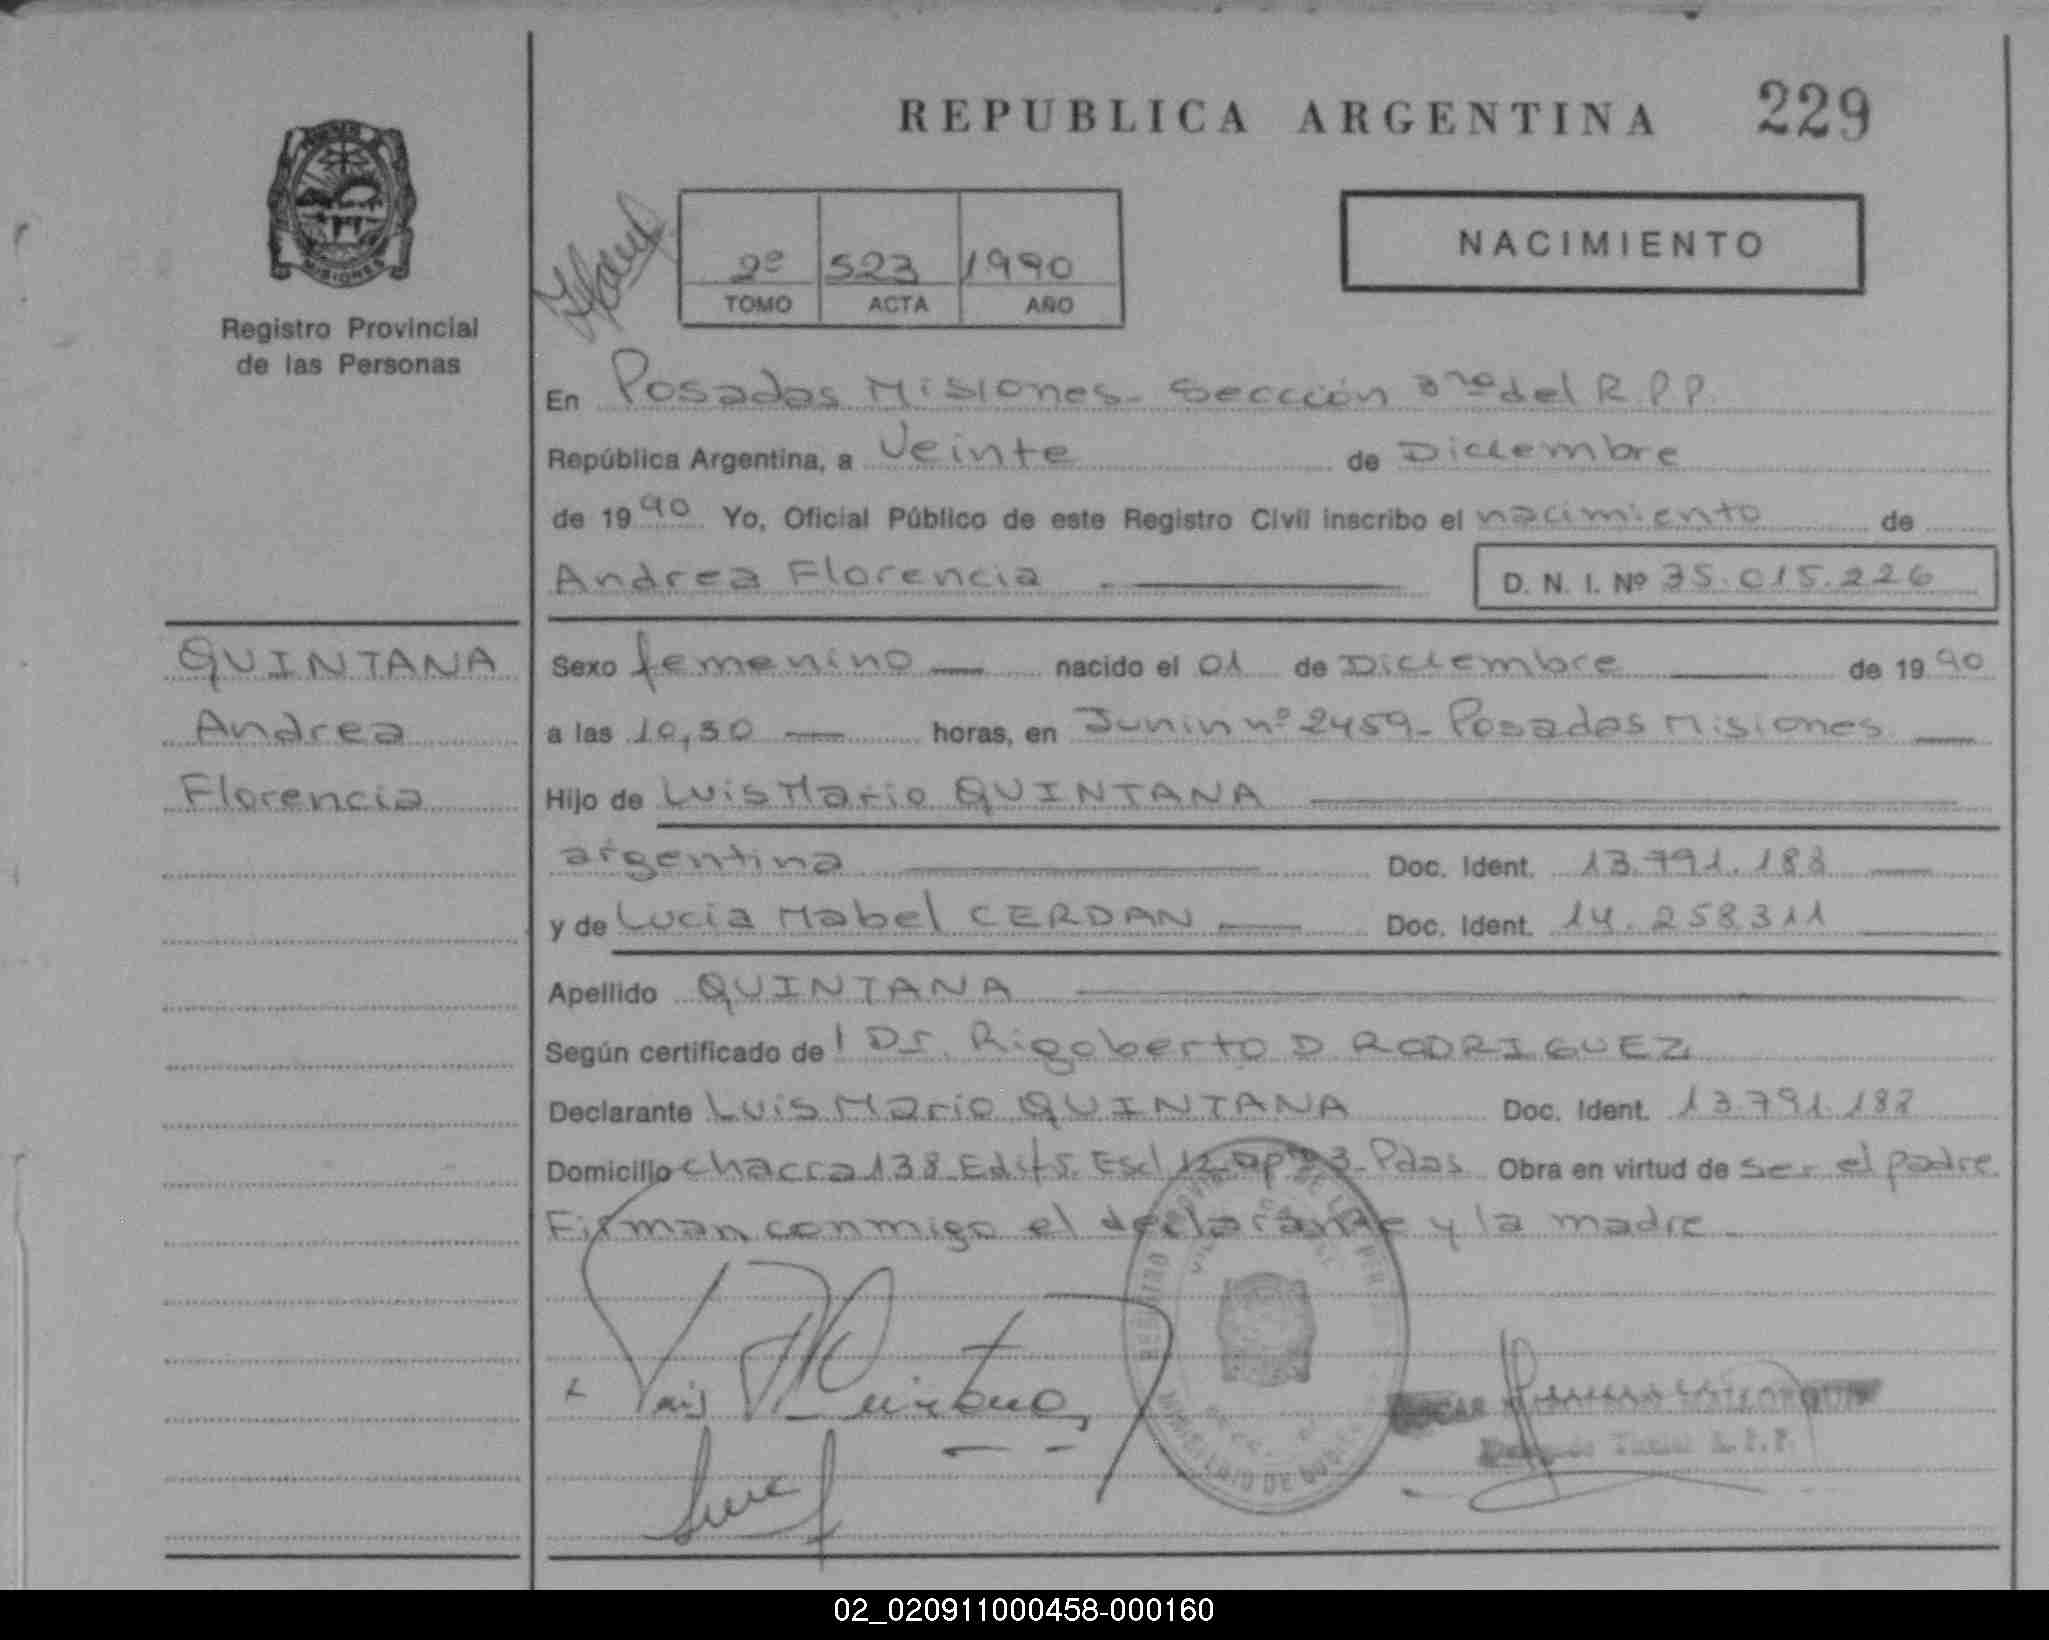 REPUBLICA ARGENTINA 229
MISIONES
Registro Provincial
de las Personas
2º 523 1990
TOMO ACTA AÑO
NACIMIENTO
En Posadas Misiones - Seccción 3ra del R.P.P.
República Argentina, a Veinte de Diciembre
de 1990 Yo, Oficial Público de este Registro Civil inscribo el nacimiento de
Andrea Florencia D. N. I. Nº 35.015.226
QUINTANA
Andrea
Florencia
Sexo femenino nacido el 01 de Diciembre de 1990
a las 10,30 horas, en Junin nº 2459 - Posadas Misiones
Hijo de Luis Mario QUINTANA
argentina Doc. Ident. 13.791.188
y de Lucia Mabel CERDAN Doc. Ident. 14.258.311
Apellido QUINTANA
Según certificado del Dr. Rigoberto D RODRIGUEZ
Declarante Luis Mario QUINTANA Doc. Ident. 13.791.188
Domicilio chacra 138 Edif 5. Esc 12 Pdas Obra en virtud de ser el padre
Firman conmigo el declarante y la madre
REGISTRO
02_020911000458-000160